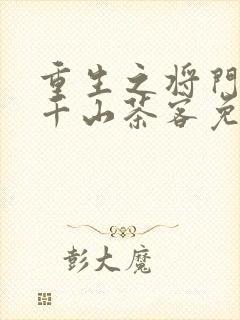 重生之将门
千山茶客免
彭大魔